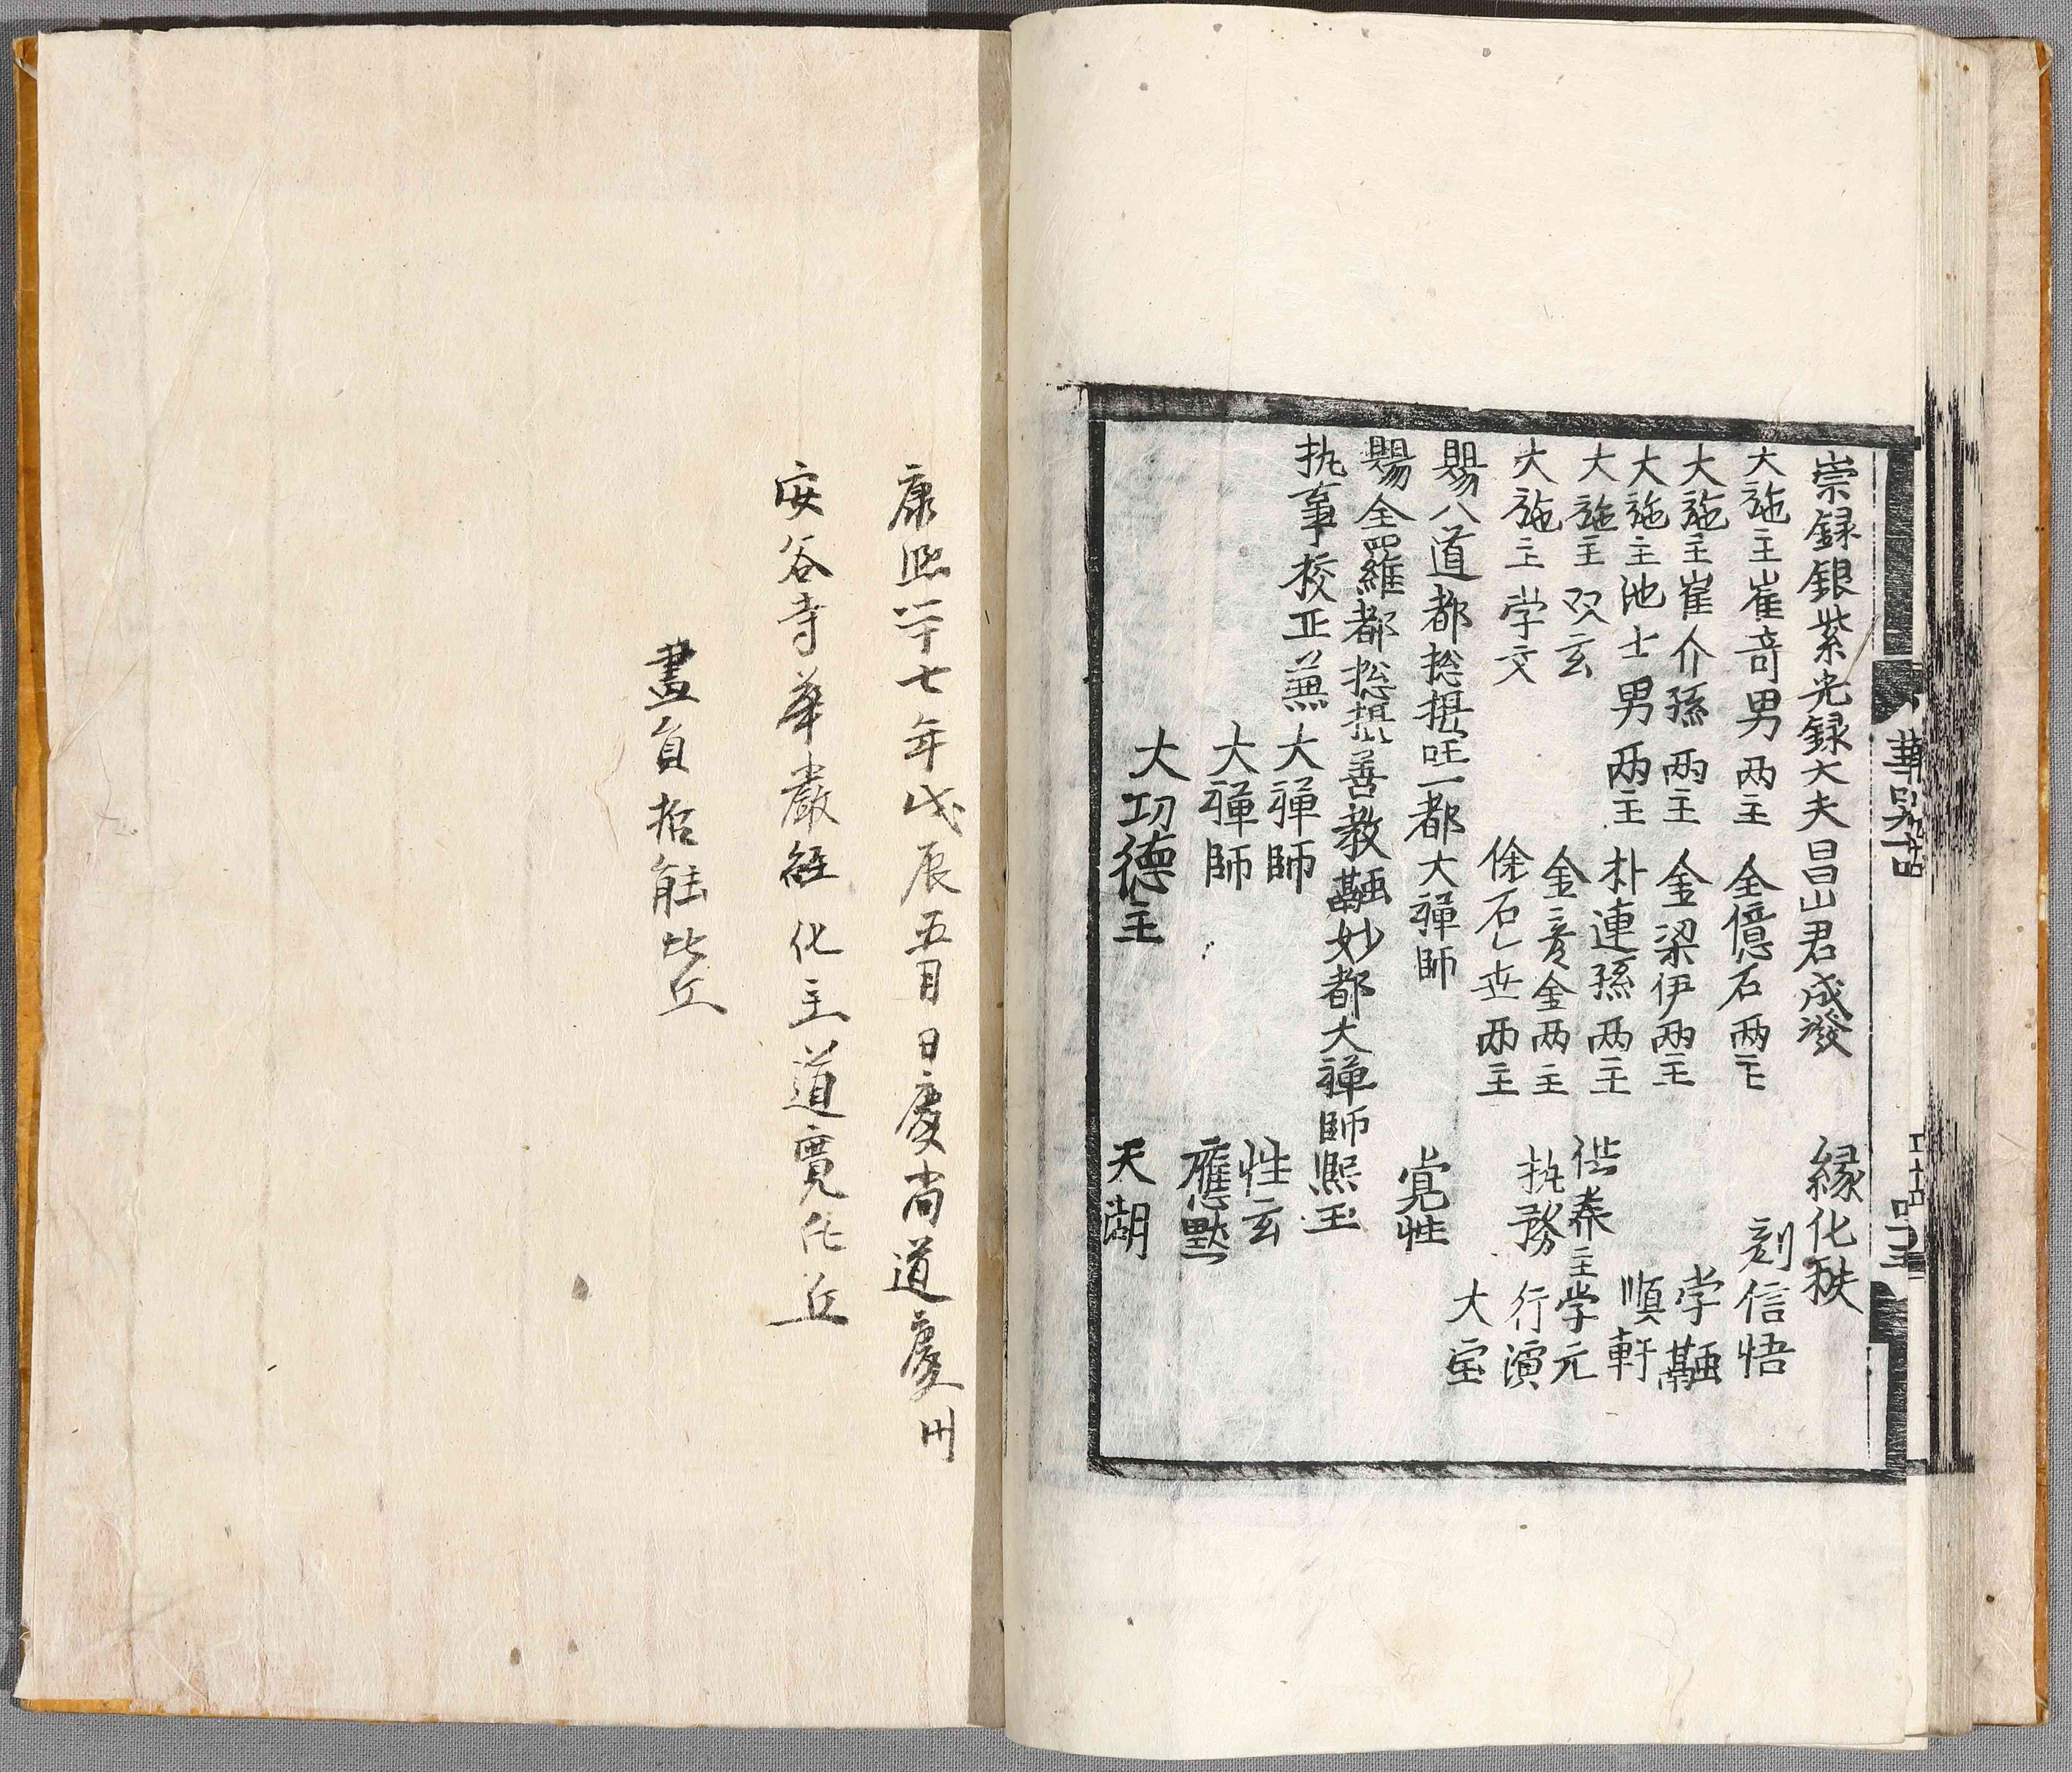 崇録銀紫光録大夫昌山君成潑 縁化秩
大施主崔竒男兩主 全億石兩主 刻信悟
大施主崔介孫兩主 金梁伊兩主 学融
大施主池士男兩主 朴連孫兩主 順軒
大施主双玄 金彦金兩主 供养主学元
大施主学文 徐石乙世兩主 执務 行演
大宝
賜八道都捴攝 旺一都大禪師 覚性
賜全羅都捴攝善教融妙都大禪師熙玉
执事校正兼大禪師 性玄
大禪師 應黙
大功德主 天湖
康熙二十七年戊辰五月日慶尚道慶州
安谷寺華嚴經化主道寬比丘
畫員哲能比丘